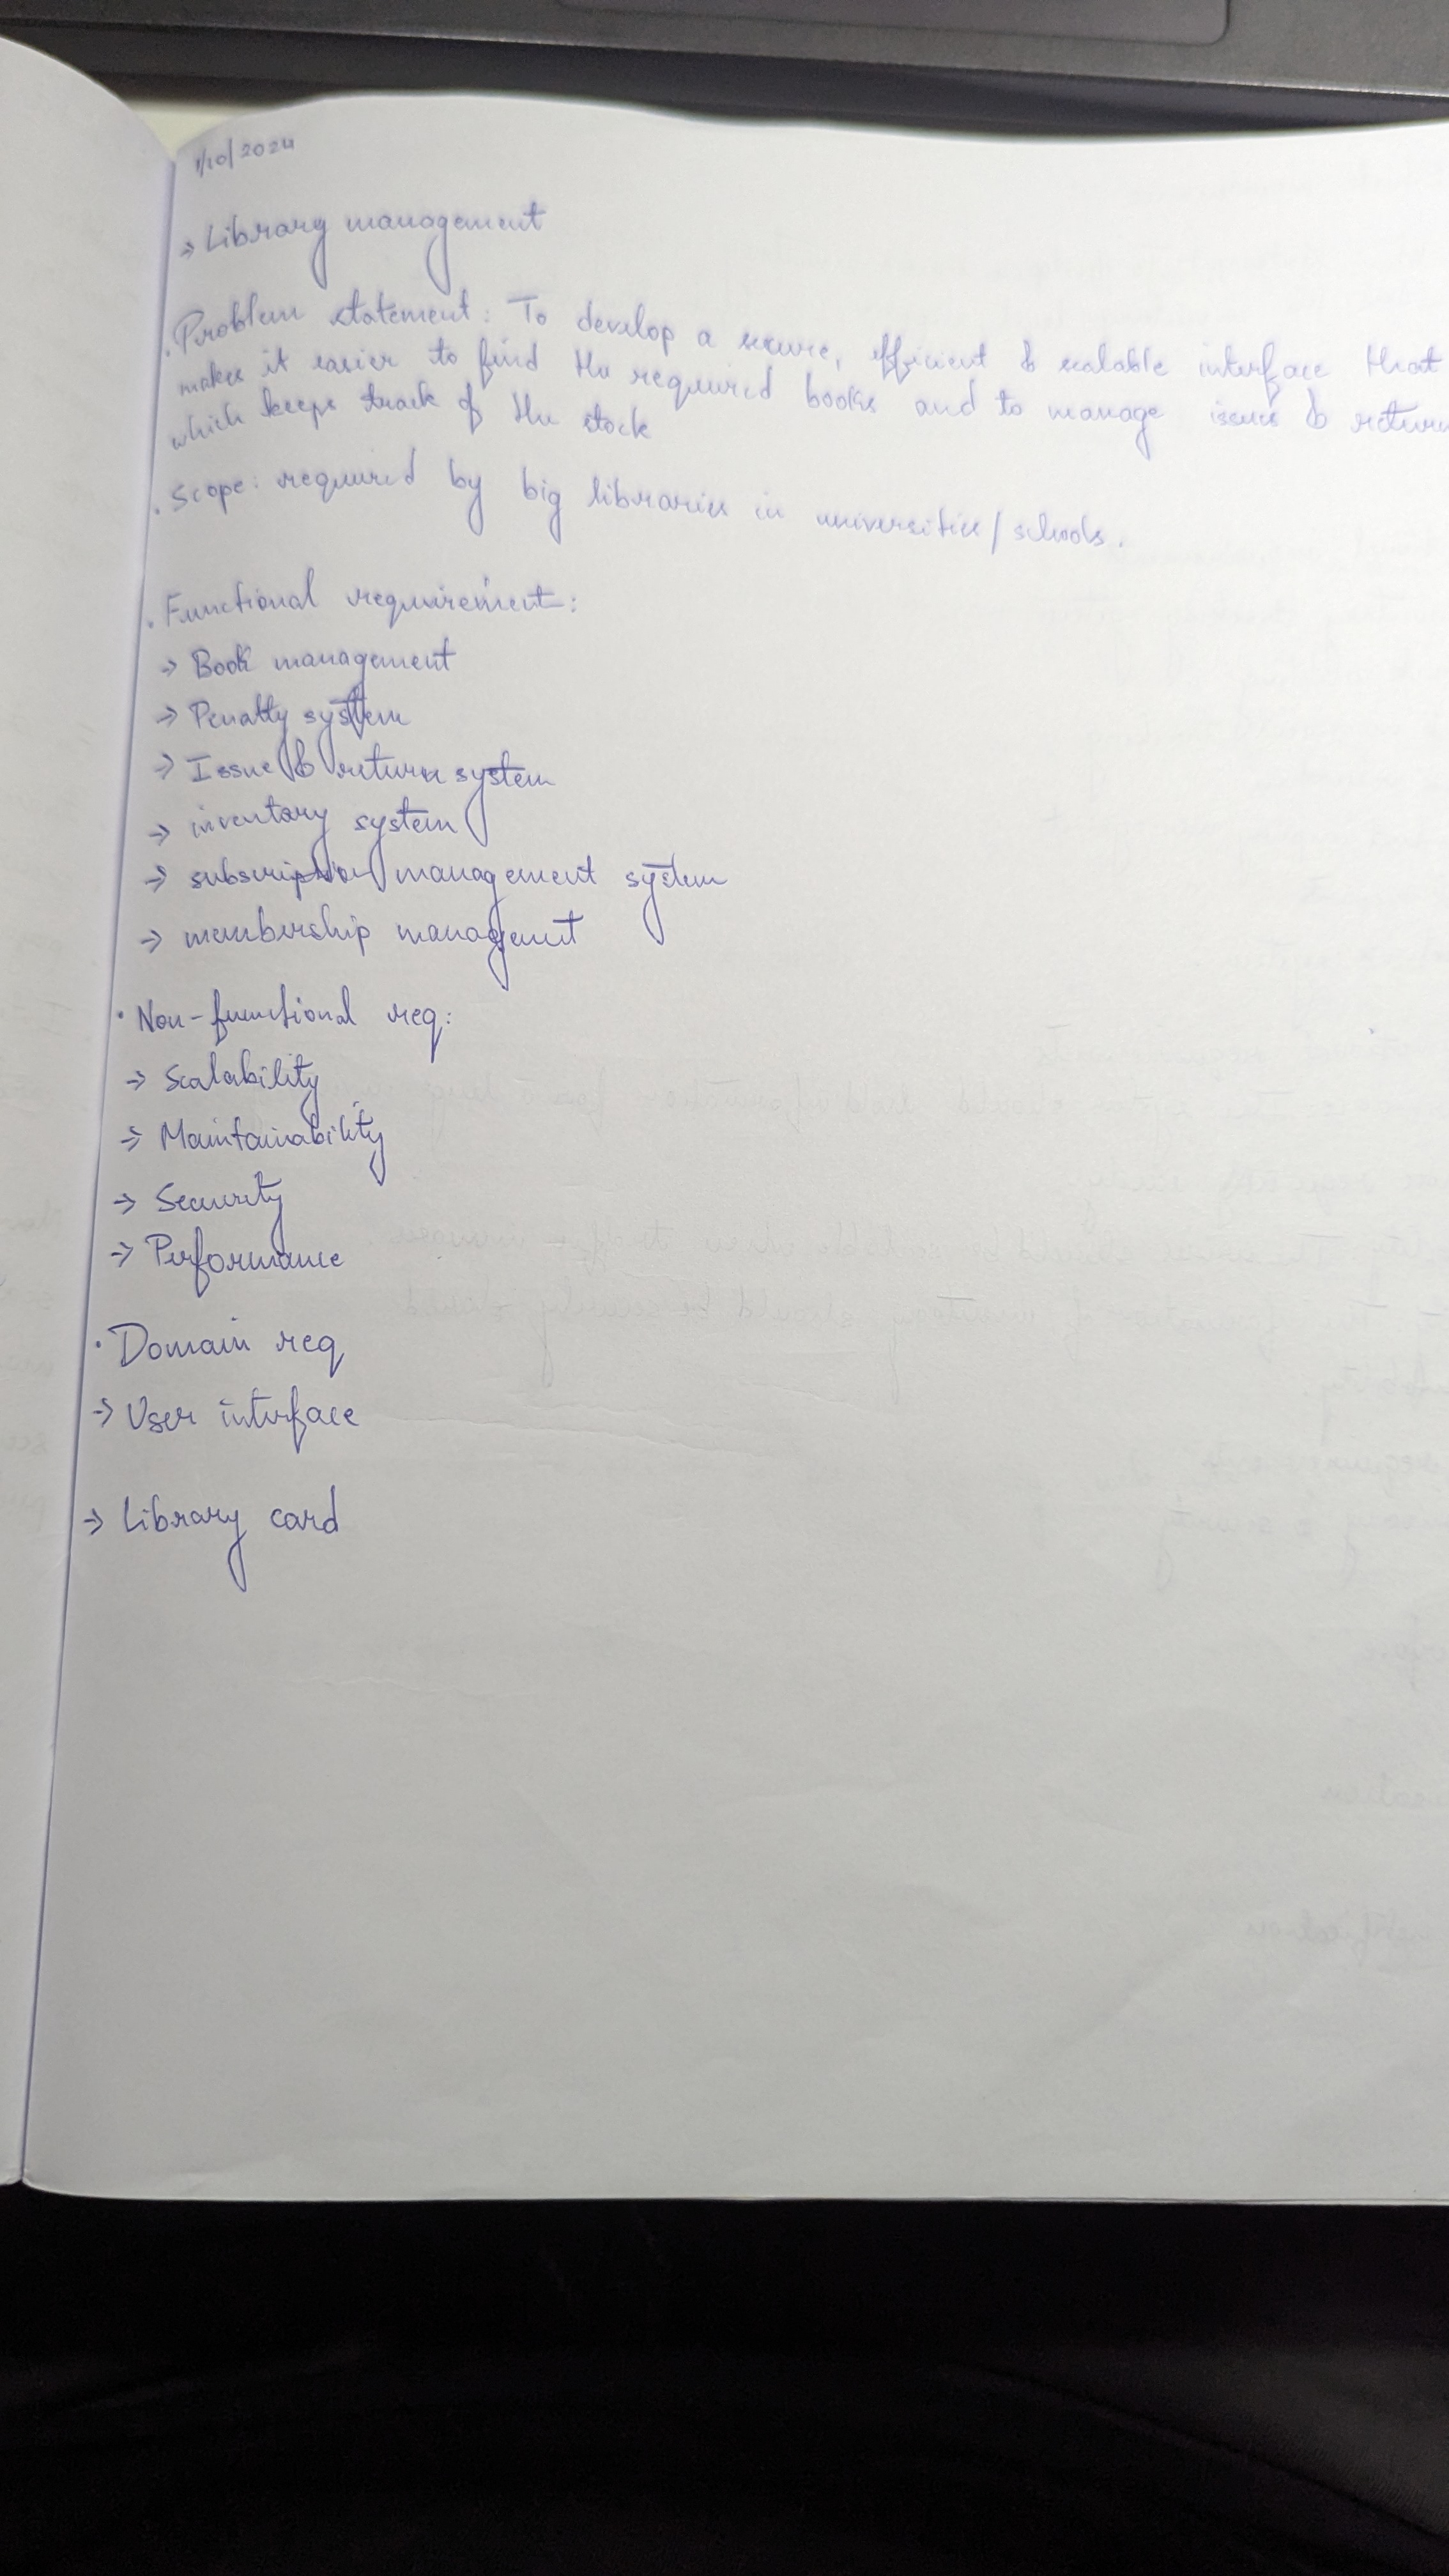 1/10/2024
→ Library management
. Problem statement: To develop a secure, efficient & scalable interface that
makes it easier to find the required books and to manage issues & return
which keeps track of the stock
. Scope: required by big libraries in universities/schools.
. Functional requirement:
→ Book management
→ Penalty system
→ Issue & return system
→ inventory system
→ subscription management system
→ membership managemt
• Non-functional req:
→ Scalability
→ Maintainability
→ Security
→ Performance
• Domain req
→ User interface
→ Library card